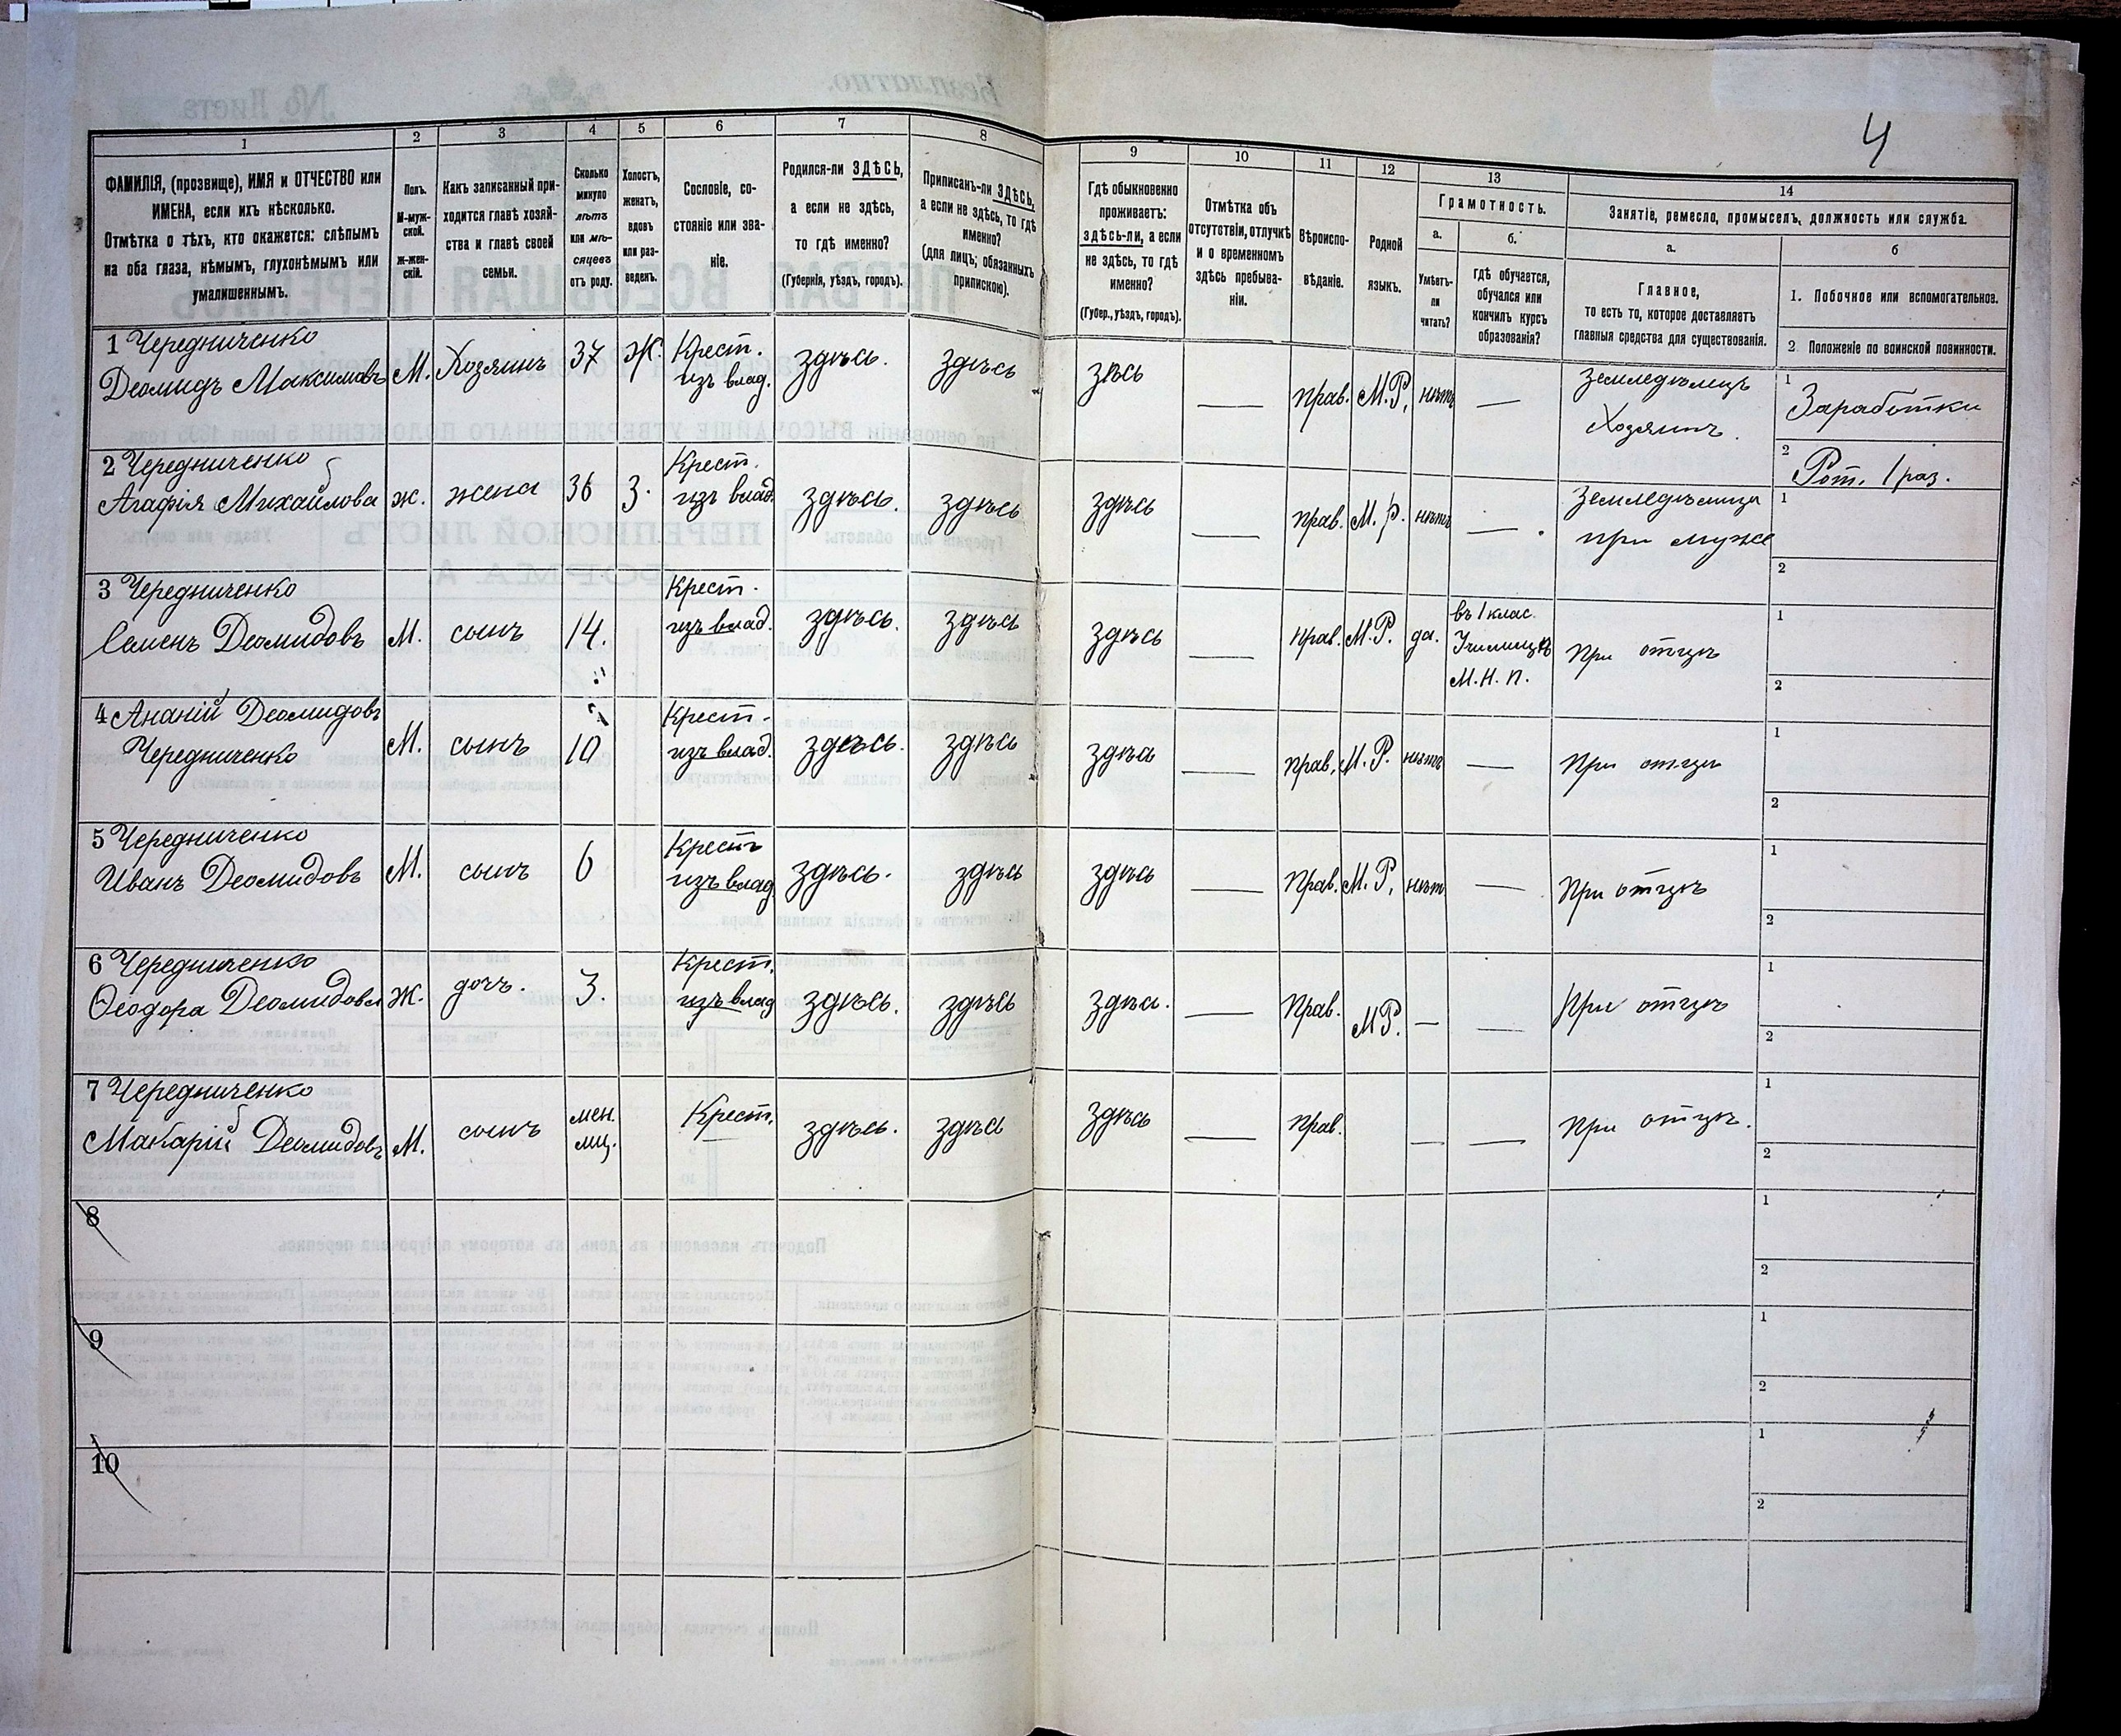 4
1
2
3
4
5
6
7
8
9
10
11
12
13
14
ФАМИЛІЯ, (прозвище), ИМЯ и ОТЧЕСТВО или
ИМЕНА, если ихъ нѣсколько.
Отмѣтка о тѣхъ, кто окажется: слѣпымъ
на оба глаза, нѣмымъ, глухонѣмымъ или
умалишеннымъ.
Полъ.
М-муж-
ской.
Ж-жен-
скій.
Какъ записанный при-
ходится главѣ хозяй-
ства и главѣ своей
семьи.
Сколько
минуло
лѣтъ
или мѣ-
сяцевъ
отъ роду.
Холостъ,
женатъ,
вдовъ
или раз-
веденъ.
Сословіе, со-
стояніе или зва-
ніе.
Родился-ли ЗДѢСЬ,
а если не здѣсь,
то гдѣ именно?
(Губернія, уѣздъ, городъ).
Приписанъ-ли ЗДѢСЬ,
а если не здѣсь, то гдѣ
именно?
(для лицъ, обязанныхъ
припискою).
Гдѣ обыкновенно
проживаетъ:
здѣсь-ли, а если
не здѣсь, то гдѣ
именно?
(Губер., уѣздъ, городъ).
Отмѣтка объ
отсутствіи, отлучкѣ
и о временномъ
здѣсь пребыва-
ніи.
Вѣроиспо-
вѣданіе.
Родной
языкъ.
Грамотность.
а.
Умѣетъ-
ли
читать?
б.
гдѣ обучается,
обучался или
кончилъ курсъ
образованія?
Занятіе, ремесло, промыселъ, должность или служба.
а.
Главное,
то есть то, которое доставляетъ
главныя средства для существованія.
б
1. Побочное или вспомогательное.
2 Положеніе по воинской повинности.
1 Чередниченко
Деомидъ Максимовъ
М.
Хозяинъ
37
Ж.
Крест.
изъ влад.
здѣсь.
здѣсь
зѣсь
—
прав.
М.Р.
нѣтъ
—
Земледѣлецъ
Хозяинъ.
1
Заработки
2
Рат. 1 раз.
2 Чередниченко
Агафія Михайлова
ж.
жена
36
З.
Крест.
изъ влад.
здѣсь.
здѣсь
здѣсь
—
прав.
М.р.
нѣтъ
—
Земледѣлица
при муже
1
2
3 Чередниченко
Семенъ Деомидовъ
М.
сынъ
14.
Крест.
изъ влад.
здѣсь.
здѣсь
здѣсь
—
прав.
М.Р.
да.
въ 1 клас.
Училищѣ
М.Н.П.
При отцѣ
1
2
4 Ананій Деомидовъ
Чередниченко
М.
сынъ
10
Крест.
изъ влад.
здѣсь.
здѣсь
здѣсь
—
прав.
М.Р.
нѣтъ
—
При отцѣ
1
2
5 Чередниченко
Иванъ Деомидовъ
М.
сынъ
6
Крест
изъ влад
здѣсь.
здѣсь
здѣсь
—
Прав.
М.Р.
нѣт
—
При отцѣ
1
2
6 Чередниченко
Ѳеодора Деомидова
Ж.
дочъ.
3.
Крест.
изъ влад
здѣсь.
здѣсь
здѣсь.
—
Прав.
МР.
—
—
При отцѣ
1
2
7 Чередниченко
Макарій Деомидовъ
М.
сынъ
мен.
мц.
Крест.
здѣсь.
здѣсь
здѣсь
—
прав.
—
—
При отцѣ.
1
2
8
1
2
9
1
2
10
1
2